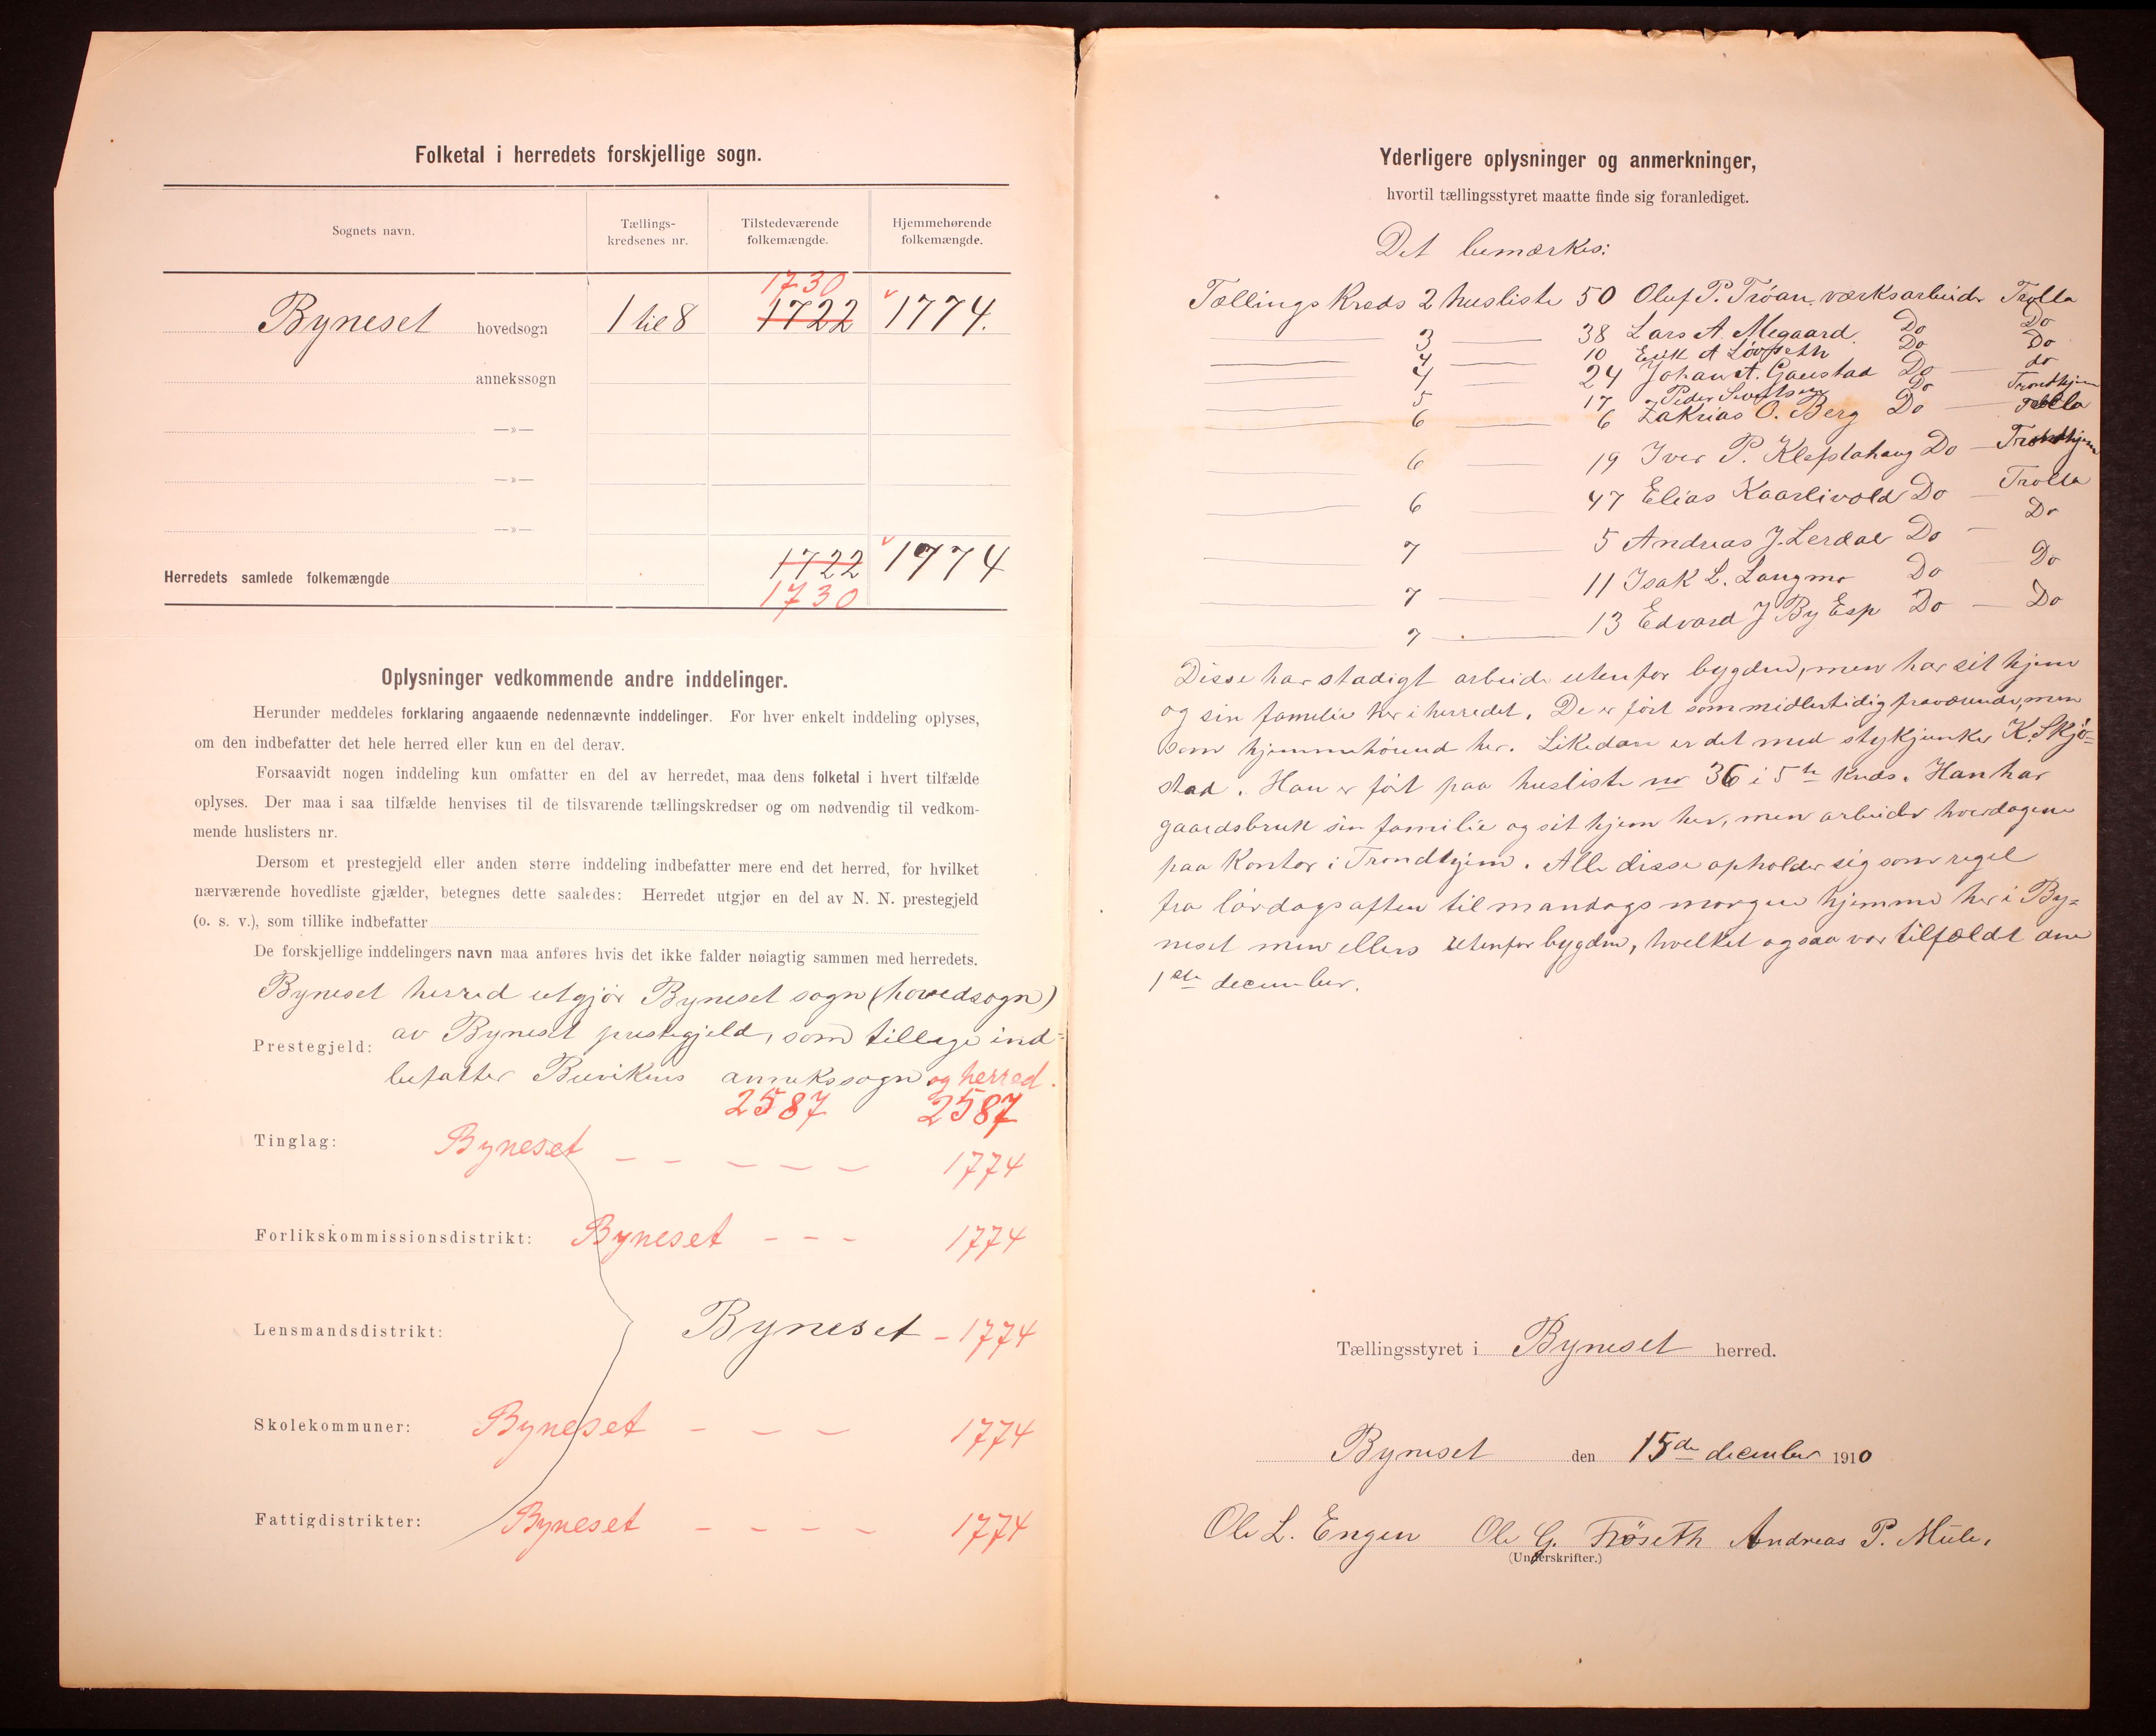 Folketal i herredets forskjellige sogn.
Sognets navn.
Tællings-
kredsenes nr.
Tilstedeværende
folkemængde.
Hjemmehørende
folkemængde.
1730
Byneset hovedsogn 1 til 8 1722 1774.
annekssogn
—»—
—»—
—»—
Herredets samlede folkemængde 1722 1774
1730
Oplysninger vedkommende andre inddelinger.
Herunder meddeles forklaring angaaende nedennævnte inddelinger. For hver enkelt inddeling oplyses,
om den indbefatter det hele herred eller kun en del derav.
Forsaavidt nogen inddeling kun omfatter en del av herredet, maa dens folketal i hvert tilfælde
oplyses. Der maa i saa tilfælde henvises til de tilsvarende tællingskredser og om nødvendig til vedkom-
mende huslisters nr.
Dersom et prestegjeld eller anden større inddeling indbefatter mere end det herred, for hvilket
nærværende hovedliste gjælder, betegnes dette saaledes: Herredet utgjør en del av N. N. prestegjeld
(o. s. v.), som tillike indbefatter
De forskjellige inddelingers navn maa anføres hvis det ikke falder nøiagtig sammen med herredets.
Byneset herred utgjör Byneset sogn (hovedsogn)
Prestegjeld: av Byneset prestegjeld, som tillege ind-
befatter Buvikens annekssogn og herred.
2587 2587
Tinglag: Byneset — — — — — 1774
Forlikskommissionsdistrikt: Byneset — — — 1774
Lensmandsdistrikt: Byneset — 1774
Skolekommuner: Byneset — — — 1774
Fattigdistrikter: Byneset — — — — 1774
Yderligere oplysninger og anmerkninger,
hvortil tællingsstyret maatte finde sig foranlediget.
Det bemærkes:
Tællings Kreds 2 husliste 50 Oluf P. Tröan værksarbeider Trolla
3 38 Lars A. Megaard Do Do
4 10 Erik A Lövseth Do Do
4 24 Johan A. Gaustad Do do
5 17 Peder Do Trondhjem
6 6 Zakrias O. Berg Do Trolla
6 19 Iver P. Klefstahaug Do Trondhjem
6 47 Elias Kaarlivold Do Trolla
7 5 Andreas J. Lerdal Do Do
7 11 Isak L. Langmo Do Do
7 13 Edvard J By Esp Do Do
Disse har stadigt arbeide utenfor bygden, men har sit hjem
og sin familie her i herredet. De er fört som midlertidig fraværende, men
som hjemmehörend her. Likedan er det med stykjunker K. Skjö-
stad. Han er fört paa husliste no 36 i 5te Kreds. Han har
gaardsbruk sin familie og sit hjem her, men arbeider hverdagene
paa Kontor i Trondhjem. Alle disse opholder sig som regel
fra lördags aften til mandags morgen hjemme her i By-
neset men ellers utenfor bygden, hvelket ogsaa var tilfældet den
1ste december.
Tællingsstyret i Byneset herred.
Byneset den 15de december 1910
Ole L. Engen Ole G. Fröseth Andreas P. Mule.
(Underskrifter.)